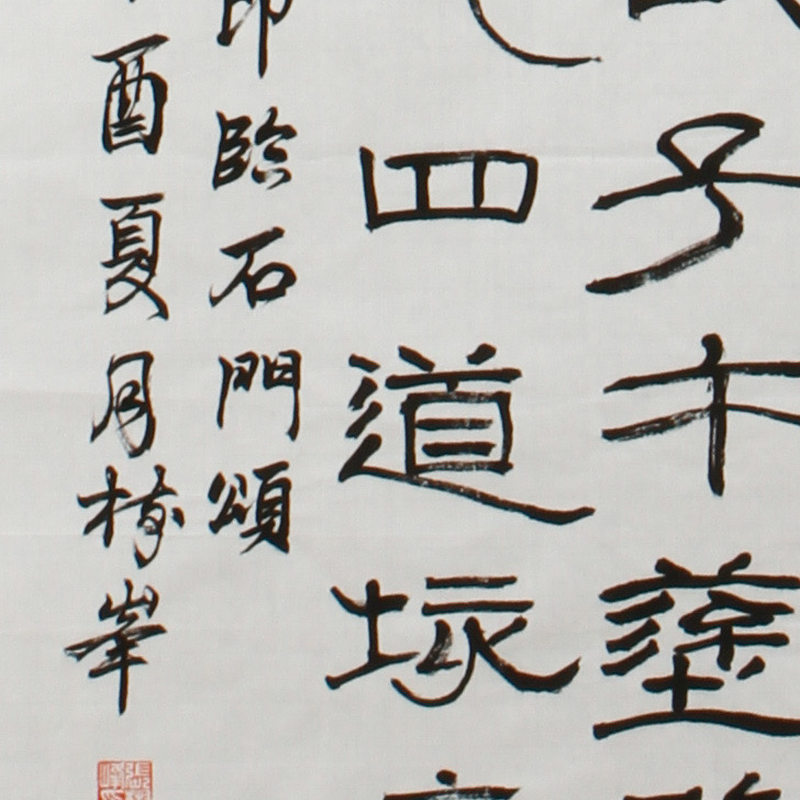 子午塗
四道垓
臨石門頌
酉夏月
峯